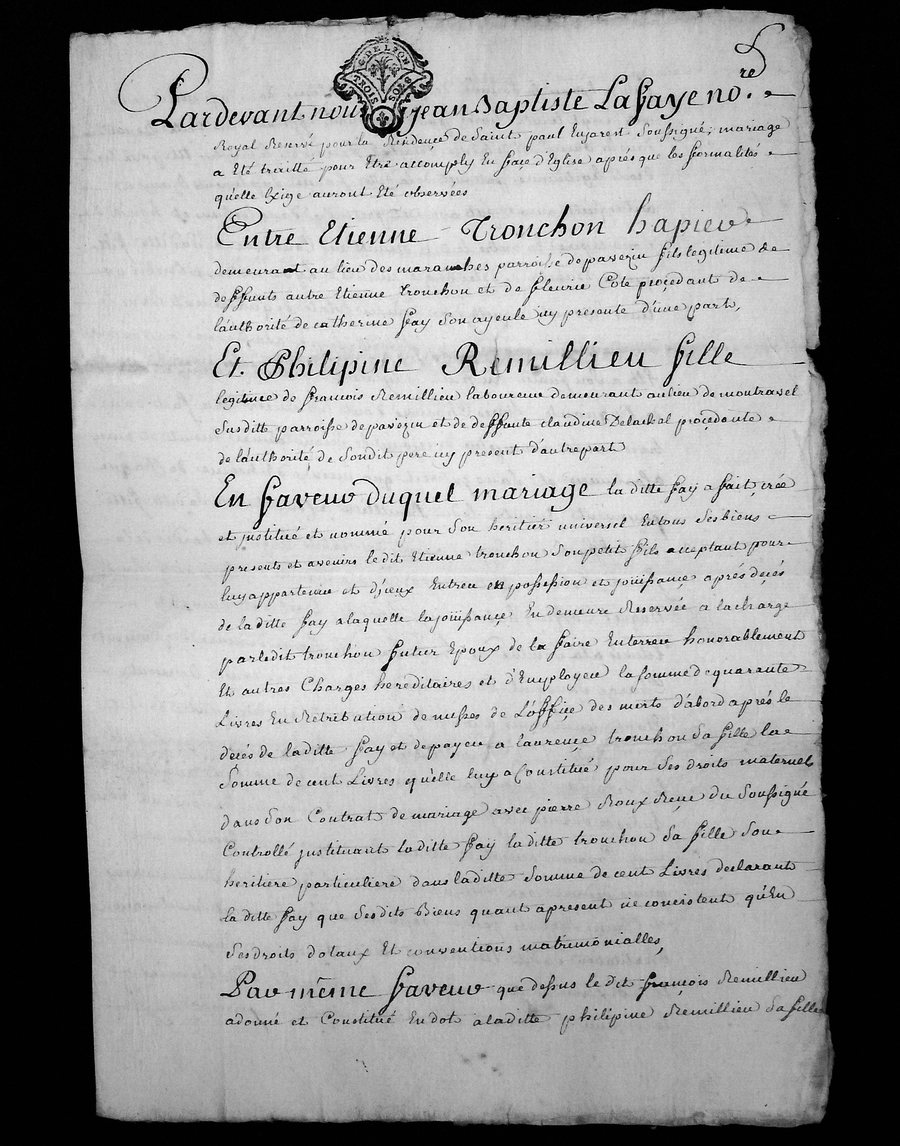 G. DE LYON
TROIS SOLS
Pardevant nous jean Baptiste Lafaye no.re
Royal Reservé pour la Residence de Saint paul Enjarest Soussigné, mariage
a Eté traitté pour Etre accomply En face d'Eglise aprés que les formalités
qu'elle Exige auront Eté observées
Entre Etienne Tronchon
demeurant au lieu des maranches parroisse de pavezin fils legitime de
deffunts autre Etienne tronchon et de fleurie Cote procedant de
l'authorité de catherine fay Son ayeule icy presente d'une part,
Et Philipine Remillieu fille
legitime de françois Remillieu laboureur demeurant au lieu de montravel
Susditte parroisse de pavezin et de deffunte claudine Delachal proçedante
de l'authorité de Sondit pere icy present d'autre part
En faveur duquel mariage la ditte fay a fait, créé
et jnstitué et nommé pour Son heritier universel En tous Ses biens
presents et avenirs ledit Etienne tronchon Son petit fils acceptant pour
luy appartenir et d'jceux Entrer en possession et joüissance aprés decés
de la ditte fay a laquelle la joüissance En demeure Reservée a la charge
par ledit tronchon futur Epoux de la faire Enterrer honorablement
Et autres Charges hereditaires et d'Employer la somme de quarante
Livres En Retribution de messes de L'offiçe des morts d'abord aprés le
decés de la ditte fay et de payer a laurençe tronchon Sa fille la
Somme de cent Livres qu'elle luy a Constitué pour Ses droits maternels
dans Son Contrat de mariage avec pierre Roux Reçu du Soussigné
Controllé jnstituant laditte fay la ditte tronchon Sa fille Son
heritiere particuliere dans laditte Somme de cent Livres declarant
la ditte fay que Sesdits Biens quant apresent ne consistent qu'En
Ses droits dotaux Et conventions matrimonialles,
Par même faveur que dessus le dit françois Remillieu
a donné et Constitué En dot a laditte philipine Remillieu Sa fille